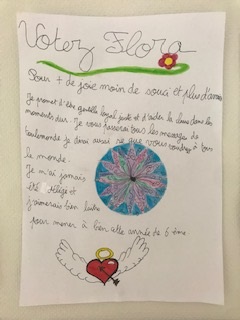 Votez Flora
Pour + de joie moin de souci et plus d'amour
Je promet d'être gentille loyal juste et d'aider la classe dans les
moments dur. Je vous passerai tous les message de
toulemonde je dirai aussi ce que vous voudrez à tous
le monde.
Je m'ai jamais
été délégé et
j'aimerais bien l'être
pour mener à bien cette année de 6ème